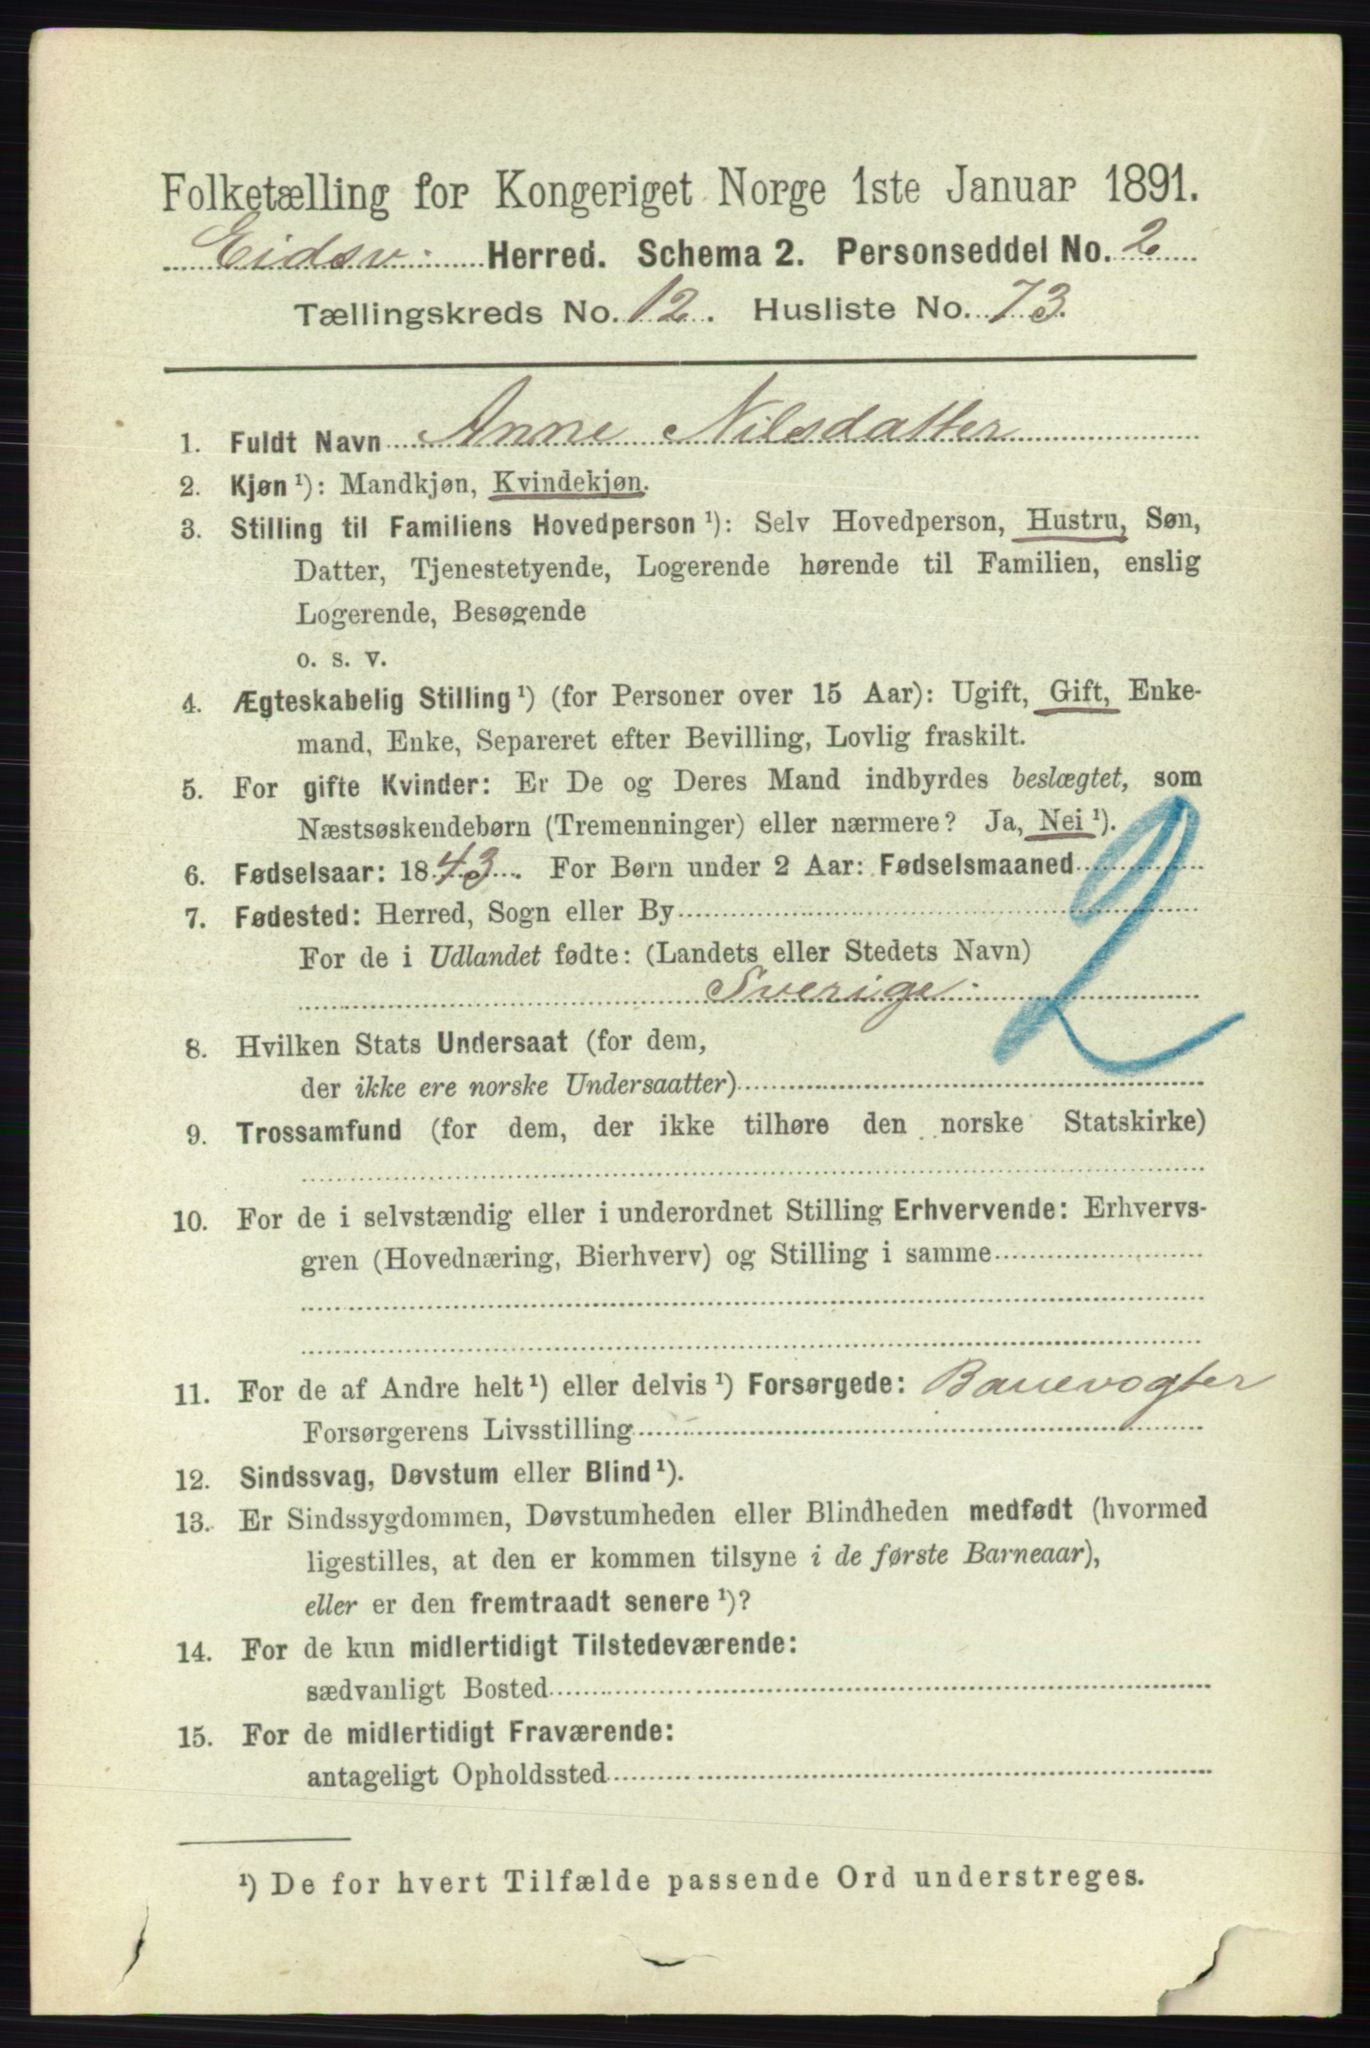 Folketælling for Kongeriget Norge 1ste Januar 1891.
Eidsv: Herred. Schema 2. Personseddel No. 2
Tællingskreds No. 12. Husliste No. 73.
1. Fuldt Navn Anne Nilsdatter
2. Kjøn ¹): Mandkjøn, Kvindekjøn.
3. Stilling til Familiens Hovedperson ¹): Selv Hovedperson, Hustru, Søn,
Datter, Tjenestetyende, Logerende hørende til Familien, enslig
Logerende, Besøgende
o. s. v.
4. Ægteskabelig Stilling ¹) (for Personer over 15 Aar): Ugift, Gift, Enke-
mand, Enke, Separeret efter Bevilling, Lovlig fraskilt.
5. For gifte Kvinder: Er De og Deres Mand indbyrdes beslægtet, som
Næstsøskendebørn (Tremenninger) eller nærmere? Ja, Nei ¹).
6. Fødselsaar: 1843. For Børn under 2 Aar: Fødselsmaaned
7. Fødested: Herred, Sogn eller By
For de i Udlandet fødte: (Landets eller Stedets Navn)
Sverige.
2
8. Hvilken Stats Undersaat (for dem,
der ikke ere norske Undersaatter)
9. Trossamfund (for dem, der ikke tilhøre den norske Statskirke)
10. For de i selvstændig eller i underordnet Stilling Erhvervende: Erhvervs-
gren (Hovednæring, Bierhverv) og Stilling i samme
11. For de af Andre helt ¹) eller delvis ¹) Forsørgede: Banevogter
Forsørgerens Livsstilling
12. Sindssvag, Døvstum eller Blind ¹).
13. Er Sindssygdommen, Døvstumheden eller Blindheden medfødt (hvormed
ligestilles, at den er kommen tilsyne i de første Barneaar),
eller er den fremtraadt senere ¹)?
14. For de kun midlertidigt Tilstedeværende:
sædvanligt Bosted
15. For de midlertidigt Fraværende:
antageligt Opholdssted
¹) De for hvert Tilfælde passende Ord understreges.